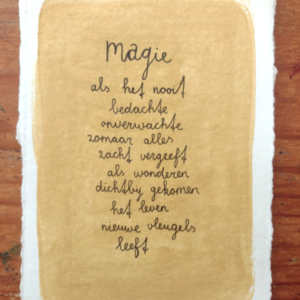 magie
als het nooit
bedachte
onverwachte
zomaar alles
zacht vergeeft
als wonderen
dichtbij gekomen
het leven
nieuwe vleugels
leeft